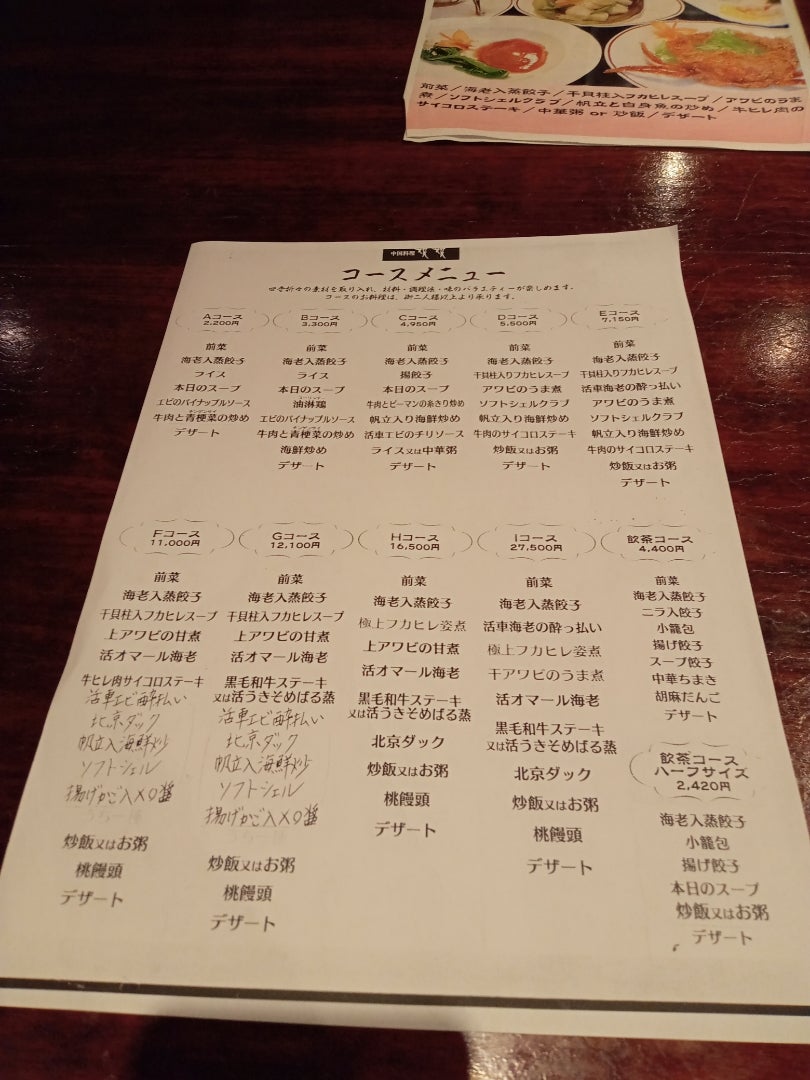 前菜／海老入蒸餃子／干貝柱入フカヒレスープ／アワビのうま
煮／ソフトシェルクラブ／帆立と白身魚の炒め／牛ヒレ肉の
サイコロステーキ／中華粥 or 炒飯／デザート
中国料理
コースメニュー
四季折々の素材を取り入れ、材料・調理法・味のバラエティーが楽しめます。
コースのお料理は、御二人様以上より承ります。
Aコース
2,200円
前菜
海老入蒸餃子
ライス
本日のスープ
エビのパイナップルソース
牛肉と青梗菜の炒め
デザート
Bコース
3,300円
前菜
海老入蒸餃子
ライス
本日のスープ
油淋鶏
エビのパイナップルソース
牛肉と青梗菜の炒め
海鮮炒め
デザート
Cコース
4,950円
前菜
海老入蒸餃子
揚餃子
本日のスープ
牛肉とピーマンの糸きり炒め
帆立入り海鮮炒め
活車エビのチリソース
ライス又は中華粥
デザート
Dコース
5,500円
前菜
海老入蒸餃子
干貝柱入りフカヒレスープ
アワビのうま煮
ソフトシェルクラブ
帆立入り海鮮炒め
牛肉のサイコロステーキ
炒飯又はお粥
デザート
Eコース
7,150円
前菜
海老入蒸餃子
干貝柱入りフカヒレスープ
活車海老の酔っ払い
アワビのうま煮
ソフトシェルクラブ
帆立入り海鮮炒め
牛肉のサイコロステーキ
炒飯又はお粥
デザート
Fコース
11,000円
前菜
海老入蒸餃子
干貝柱入フカヒレスープ
上アワビの甘煮
活オマール海老
牛ヒレ肉サイコロステーキ
活車エビ酔払い
北京ダック
帆立入海鮮炒
ソフトシェル
揚げかご入XO醤
炒飯又はお粥
桃饅頭
デザート
Gコース
12,100円
前菜
海老入蒸餃子
干貝柱入フカヒレスープ
上アワビの甘煮
活オマール海老
黒毛和牛ステーキ
又は活うきそめばる蒸
活車エビ酔払い
北京ダック
帆立入海鮮炒
ソフトシェル
揚げかご入XO醤
炒飯又はお粥
桃饅頭
デザート
Hコース
16,500円
前菜
海老入蒸餃子
極上フカヒレ姿煮
上アワビの甘煮
活オマール海老
黒毛和牛ステーキ
又は活うきそめばる蒸
北京ダック
炒飯又はお粥
桃饅頭
デザート
iコース
27,500円
前菜
海老入蒸餃子
活車海老の酔っ払い
極上フカヒレ姿煮
干アワビのうま煮
活オマール海老
黒毛和牛ステーキ
又は活うきそめばる蒸
北京ダック
炒飯又はお粥
桃饅頭
デザート
飲茶コース
4,400円
前菜
海老入蒸餃子
ニラ入餃子
小籠包
揚げ餃子
スープ餃子
中華ちまき
胡麻だんご
デザート
飲茶コース
ハーフサイズ
2,420円
海老入蒸餃子
小籠包
揚げ餃子
本日のスープ
炒飯又はお粥
デザート